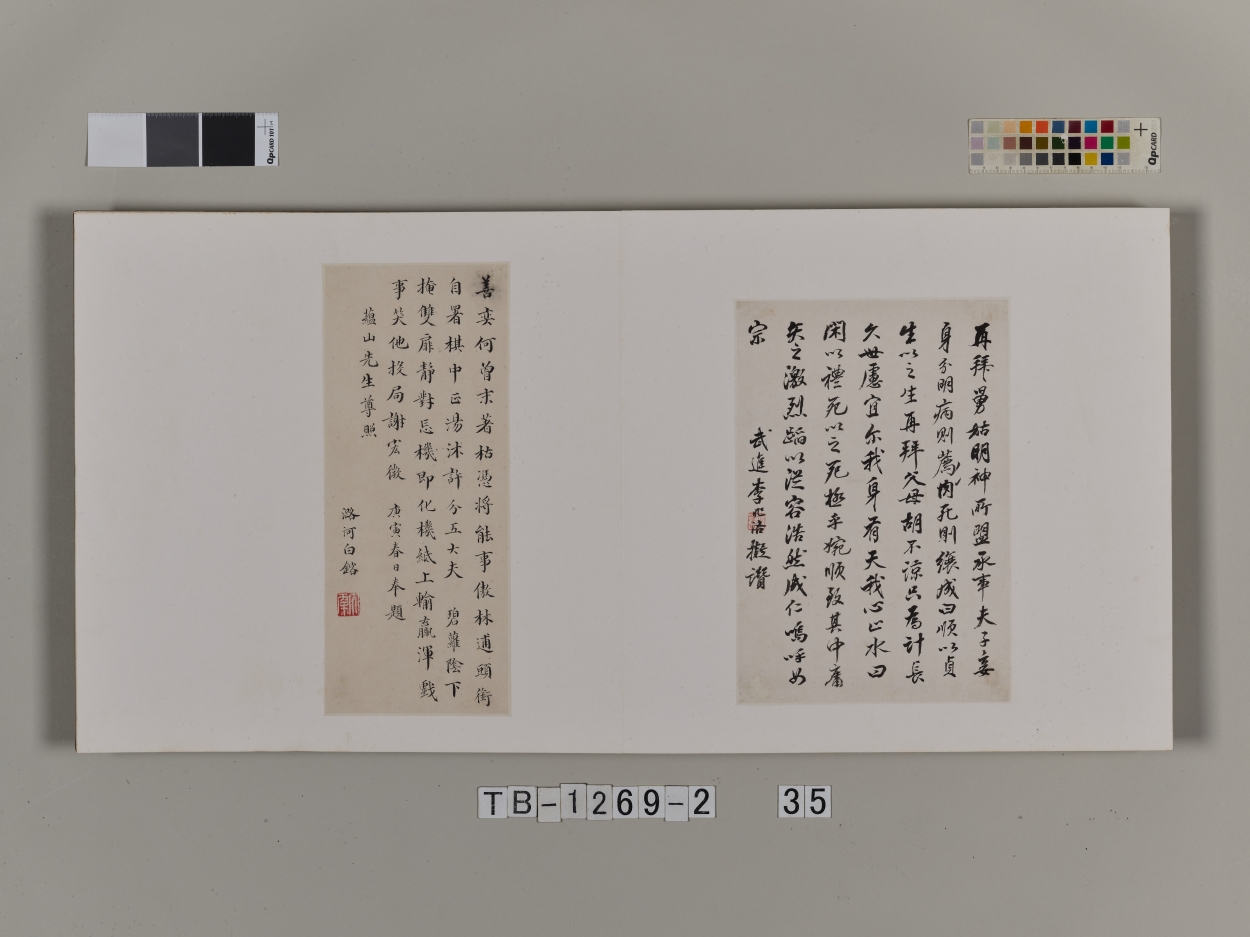 再拜舅姑明神所盟承事夫子妾
身分明病則薦肉死則纕成曰順以貞
生以之生再拜父母胡不諒只為計長
久毋慮宜尔我身有天我心止水曰
閑以禮死以之死極平婉順致其中庸
矣之激烈蹈以從容浩然成仁嗚呼女
宗
武進李兆洛擬讚
善弈何曾末著枯憑將能事傲林逋頭銜
自署棋中正湯沐許分五大夫 碧蘿陰下
掩雙扉靜對忘機即化機紙上輸贏渾戲
事笑他投局謝宏微 庚寅春日奉題
蘊山先生尊照
潞河白鎔
QpCARD 101
QpCARD
TB-1269-2 35